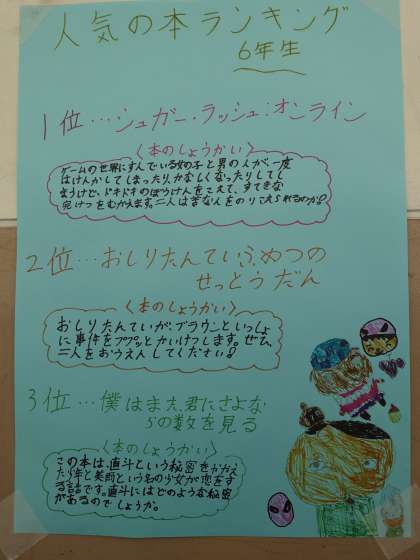 人気の本ランキング
6年生
1位…シュガー・ラッシュ:オンライン
〈本のしょうかい〉
ゲームの世界にすんでいる女の子と男の人が、一度
はけんかしてしまったり、かなしくなったりしてし
まうけど、ドキドキのぼうけんをこえて、すてきな
完けつをむかえます。二人は苦なんをのりこえられるのか?
2位…おしりたんてい ふめつの
せっとうだん
〈本のしょうかい〉
おしりたんていが、ブラウンといっしょ
に事件をププッとかいけつします。ぜひ、
二人をおうえんしてください!
3位…僕はまた、君にさよな
らの数を見る
〈本のしょうかい〉
この本は、直斗という秘密をかかえ
た少年と美雨という名の少女が恋をす
る話です。直斗にはどのような秘密
があるのでしょうか。